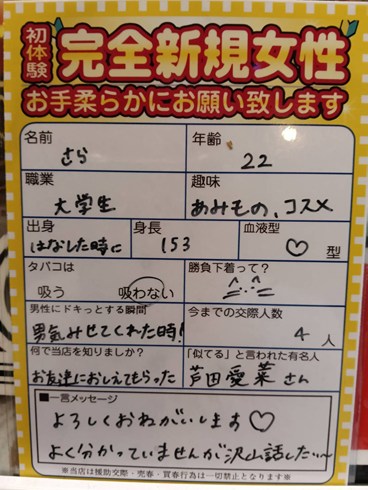 初体験
完全新規女性
お手柔らかにお願い致します
名前
さら
年齢
22
職業
大学生
趣味
あみもの、コスメ
出身
はなした時に
身長
153
血液型
♡型
タバコは
吸う 吸わない
勝負下着って?
男性にドキっとする瞬間
男気みせてくれた時!
今までの交際人数
4人
何で当店を知りましたか?
お友達におしえてもらった
「似てる」と言われた有名人
芦田愛菜さん
■一言メッセージ
よろしくおねがいします♡
よく分かっていませんが沢山話したい〜
※当店は援助交際・売春・買春行為は一切禁止となります※